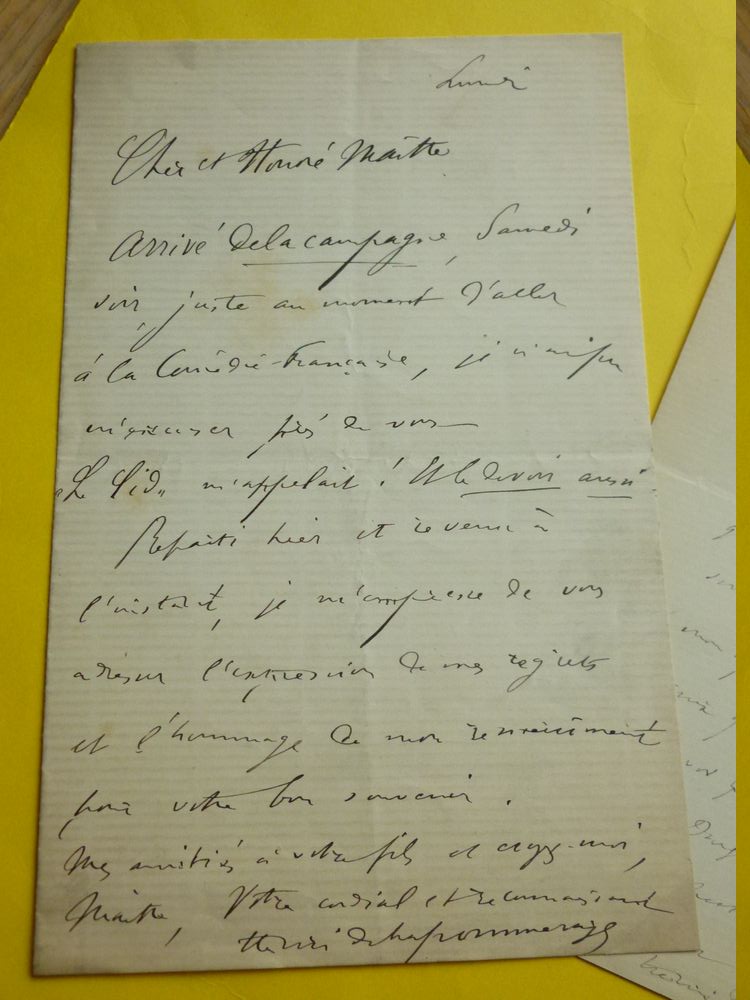 Lundi
Cher et Honoré Maître
Arrivé de la campagne, Samedi
soir, juste au moment d'aller
à la Comédie-Française, je n'ai pu
m'excuser près de vous
"Le Cid" m'appelait ! Et le devoir aussi
Reparti hier et revenu à
l'instant, je m'empresse de vous
adresser l'expression de mes regrets
et l'hommage de mon remerciement
pour votre bon souvenir.
Mes amitiés à votre fils et croyez-moi,
Maître, Votre cordial et reconnaissant
Henri de Lapommeraye